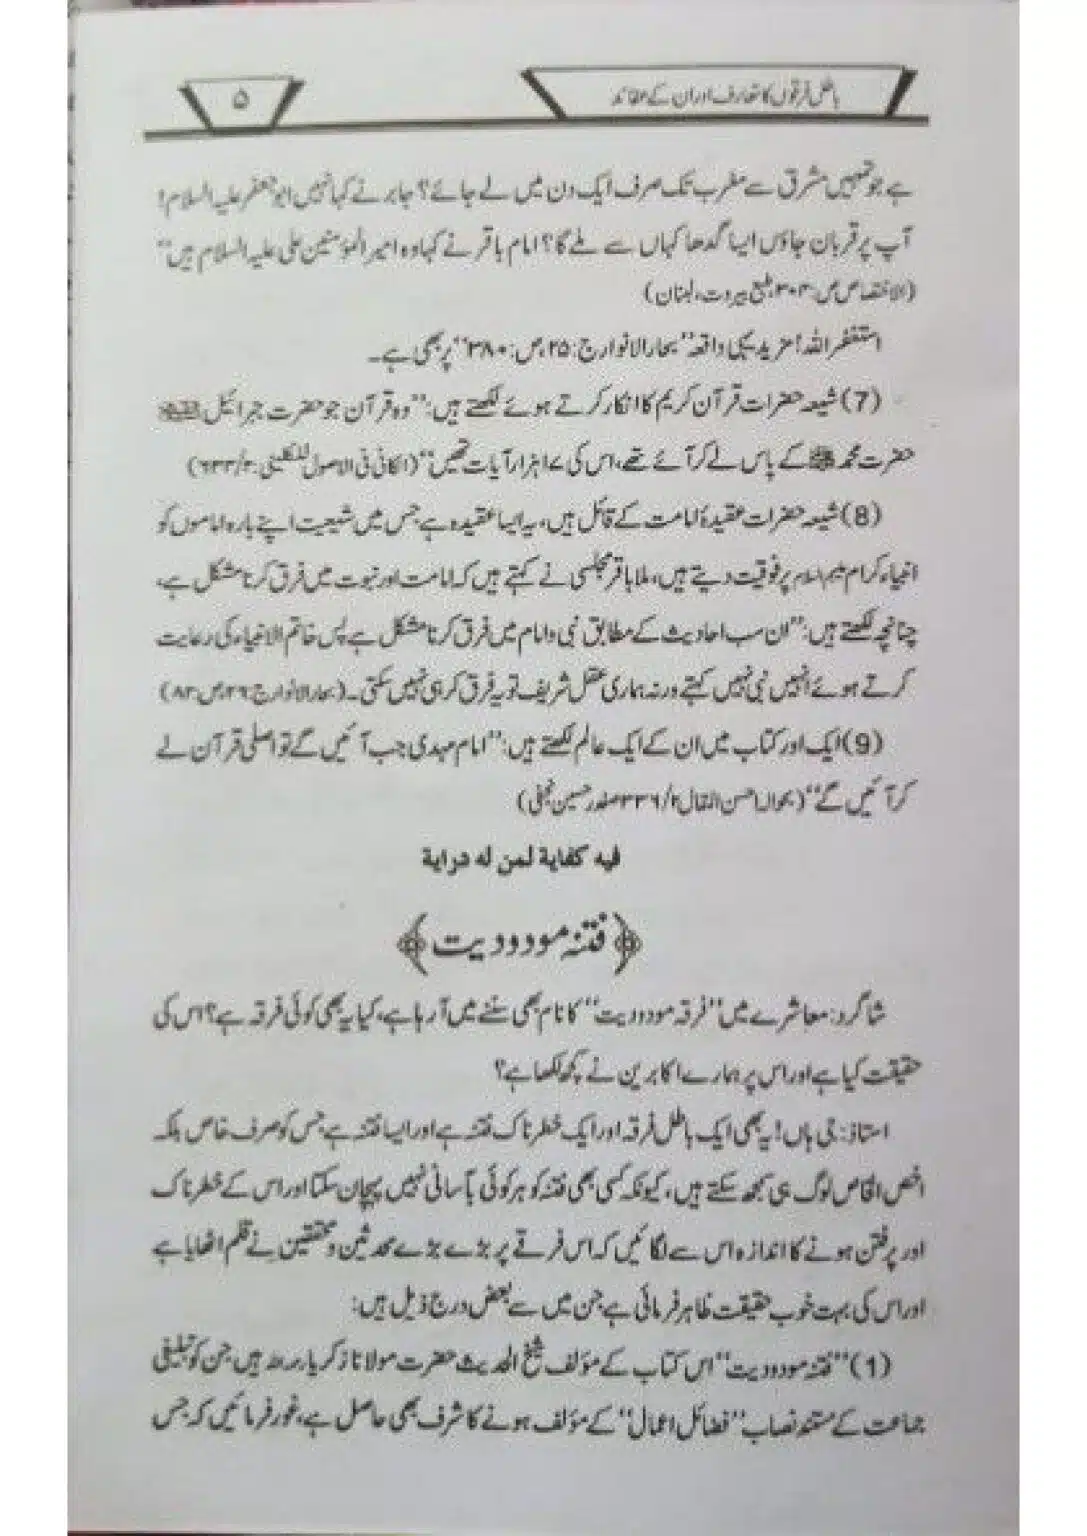 باطل فرقوں کا تعارف اور ان کے عقائد
۵
ہے جو تمہیں مشرق سے مغرب تک صرف ایک دن میں لے جائے؟ جابر نے کہا نہیں ابو جعفر علیہ السلام!
آپ پر قربان جاؤں ایسا گدھا کہاں سے ملے گا؟ امام باقر نے کہا وہ امیر المؤمنین علی علیہ السلام ہیں"
(الاختصاص ص:۳۰۳ طبع بیروت، لبنان)
استغفر اللہ! مزید یہی واقعہ "بحار الانوار ج:۲۵، ص:۳۸۰" پر بھی ہے۔
(7) شیعہ حضرات قرآن کریم کا انکار کرتے ہوئے لکھتے ہیں: "وہ قرآن جو حضرت جبرائیل
حضرت محمد ﷺ کے پاس لے کر آئے تھے، اس کی ۱۷ ہزار آیات تھیں" (الکافی فی الاصول للکلینی:۲/۶۳۳)
(8) شیعہ حضرات عقیدۂ امامت کے قائل ہیں، یہ ایسا عقیدہ ہے جس میں شیعیت اپنے بارہ اماموں کو
انبیاء کرام علیہم السلام پر فوقیت دیتے ہیں، ملا باقر مجلسی نے کہتے ہیں کہ امامت اور نبوت میں فرق کرنا مشکل ہے،
چنانچہ لکھتے ہیں: "ان سب احادیث کے مطابق نبی و امام میں فرق کرنا مشکل ہے پس خاتم الانبیاء کی رعایت
کرتے ہوئے انہیں نبی نہیں کہتے ورنہ ہماری عقل شریف تو یہ فرق کر ہی نہیں سکتی۔ (بحار الانوار ج۲۶ ص۸۲)
(9) ایک اور کتاب میں ان کے ایک عالم لکھتے ہیں: "امام مہدی جب آئیں گے تو اصلی قرآن لے
کر آئیں گے" (بحوالہ احسن المقال ۲/۳۳۶ صفدر حسین نجفی)
فیه کفایة لمن له درایة
﴿فتنہ مودودیت﴾
شاگرد: معاشرے میں "فرقہ مودودیت" کا نام بھی سننے میں آ رہا ہے، کیا یہ بھی کوئی فرقہ ہے؟ اس کی
حقیقت کیا ہے اور اس پر ہمارے اکابرین نے کچھ لکھا ہے؟
استاذ: جی ہاں! یہ بھی ایک باطل فرقہ اور ایک خطرناک فتنہ ہے اور ایسا فتنہ ہے جس کو صرف خاص بلکہ
اخص الخاص لوگ ہی سمجھ سکتے ہیں، کیونکہ کسی بھی فتنہ کو ہر کوئی بآسانی نہیں پہچان سکتا اور اس کے خطرناک
اور پرفتن ہونے کا اندازہ اس سے لگائیں کہ اس فرقے پر بڑے بڑے محدثین و محققین نے قلم اٹھایا ہے
اور اس کی بہت خوب حقیقت ظاہر فرمائی ہے جن میں سے بعض درج ذیل ہیں:
(1) "فتنہ مودودیت" اس کتاب کے مؤلف شیخ الحدیث حضرت مولانا زکریا رحمہ اللہ ہیں جن کو تبلیغی
جماعت کے مستند نصاب "فضائل اعمال" کے مؤلف ہونے کا شرف بھی حاصل ہے، غور فرمائیں کہ جس